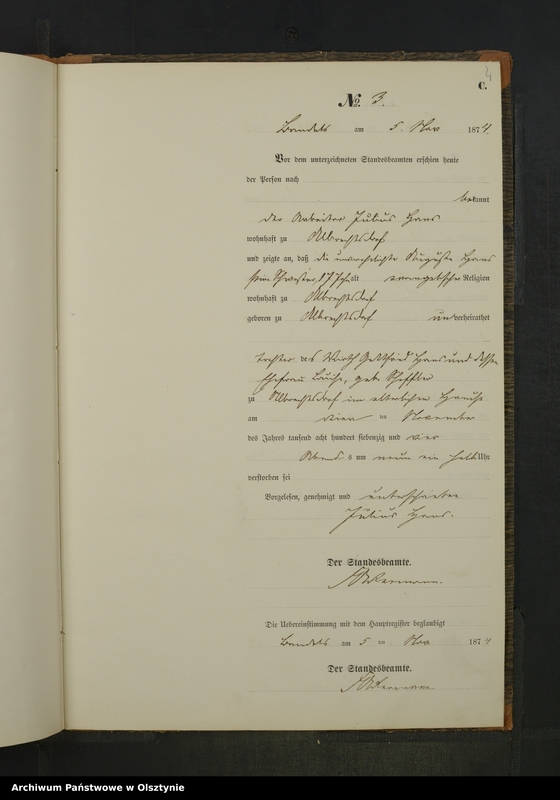 4
C.
No. 3.
Bandels am 5. Nov 1874.
Vor dem unterzeichneten Standesbeamten erschien heute
der Person nach
bekannt
der Arbeiter Julius Haus
wohnhaft zu Albrechtsdorf
und zeigte an, daß die unverehelichte Auguste Haus
seine Schwester, 17 Jahr alt evangelischer Religion
wohnhaft zu Albrechtsdorf
geboren zu Albrechtsdorf unverheirathet
Tochter des Wirth Gottfried Haus und dessen
Ehefrau Louise, geb. Scheffler
zu Albrechtsdorf im elterlichen Hause
am vier ten November
des Jahres tausend acht hundert siebenzig und vier
Abends um neun ein halb Uhr
verstorben sei
Vorgelesen, genehmigt und unterschrieben
Julius Haus.
Der Standesbeamte.
Die Uebereinstimmung mit dem Hauptregister beglaubigt
Bandels am 5 ten Nov 1874
Der Standesbeamte.
Archiwum Państwowe w Olsztynie